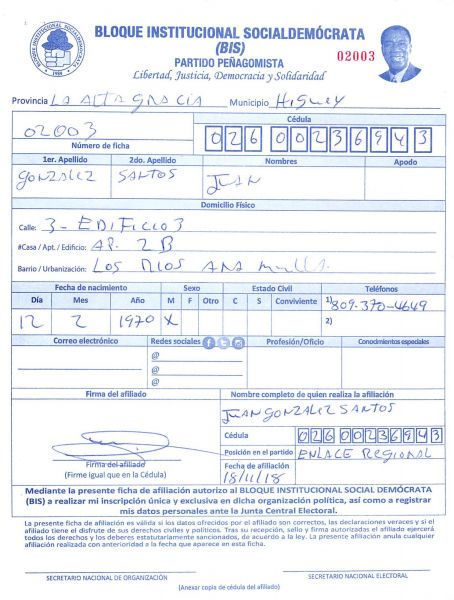 BLOQUE INSTITUCIONAL SOCIALDEMÓCRATA
BLOQUE INSTITUCIONAL SOCIALDEMÓCRATA
(BIS)
PARTIDO PEÑAGOMISTA
Libertad, Justicia, Democracia y Solidaridad
02003
Provincia LA ALTAGRACIA Municipio HIGUEY
02003
Número de ficha
Cédula
02600236943
1er. Apellido 2do. Apellido Nombres Apodo
GONZALEZ SANTOS JUAN
Domicilio Físico
Calle: 3 - EDIFICIO 3
#Casa / Apt. / Edificio: AP. 2 B
Barrio / Urbanización: LOS RIOS ANA
Fecha de nacimiento Sexo Estado Civil Teléfonos
Día Mes Año M F Otro C S Conviviente 1) 809-370-4649
12 2 1970 X 2)
Correo electrónico Redes sociales Profesión/Oficio Conocimientos especiales
@
@
@
Firma del afiliado Nombre completo de quien realiza la afiliación
JUAN GONZALEZ SANTOS
Cédula 02600236943
Posición en el partido ENLACE REGIONAL
Firma del afiliado
(Firme igual que en la Cédula)
Fecha de afiliación 18/11/18
Mediante la presente ficha de afiliación autorizo al BLOQUE INSTITUCIONAL SOCIAL DEMÓCRATA
(BIS) a realizar mi inscripción única y exclusiva en dicha organización política, así como a registrar
mis datos personales ante la Junta Central Electoral.
La presente afiliación es válida si los datos ofrecidos por el afiliado son correctos, las declaraciones veraces y si el
afiliado tiene el disfrute de sus derechos civiles y políticos. Tras su recepción, sello y firma autorizadas el afiliado ejercerá
todos los derechos y los deberes estatutariamente sancionados, de acuerdo a la ley. La presente afiliación anula cualquier
afiliación realizada con anterioridad a la fecha que aparece en esta ficha.
SECRETARIO NACIONAL DE ORGANIZACIÓN SECRETARIO NACIONAL ELECTORAL
(Anexar copia de cédula del afiliado)